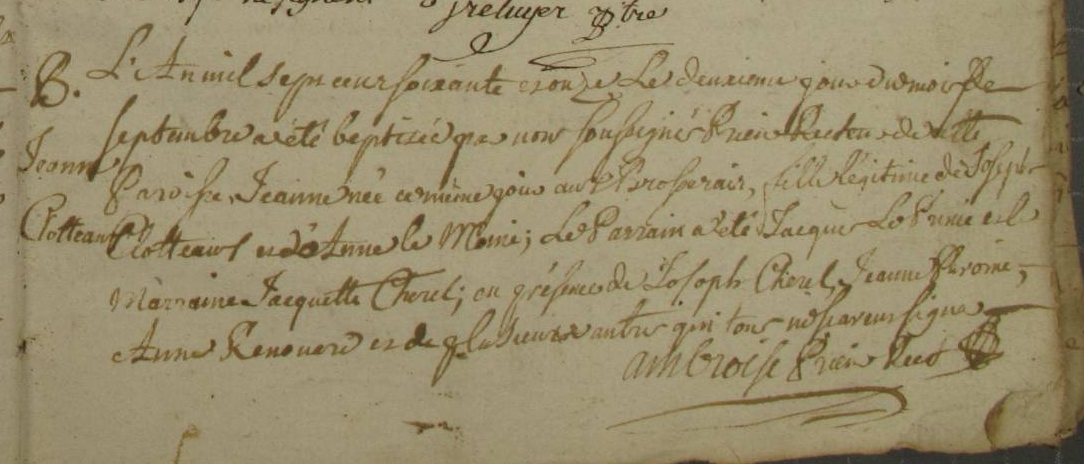 B. L'An mil sept cent soixante et onze Le deuxieme jour du mois de
Jeanne septembre a été baptisée par nous soussigné Prieur Recteur de cette
Paroisse, Jeanne née ce même jour aux Brosserais, fille légitime de Joseph
Clotteaux Clotteaux et d'Anne le Moine; Le Parrain a été Jacques Le et la
Marraine Jacquette Cherel; en présence de Joseph Cherel, Jeanne
Anne Renouard et de plusieurs autres qui tous ne sçavent signer
ambroise Prieur Rect